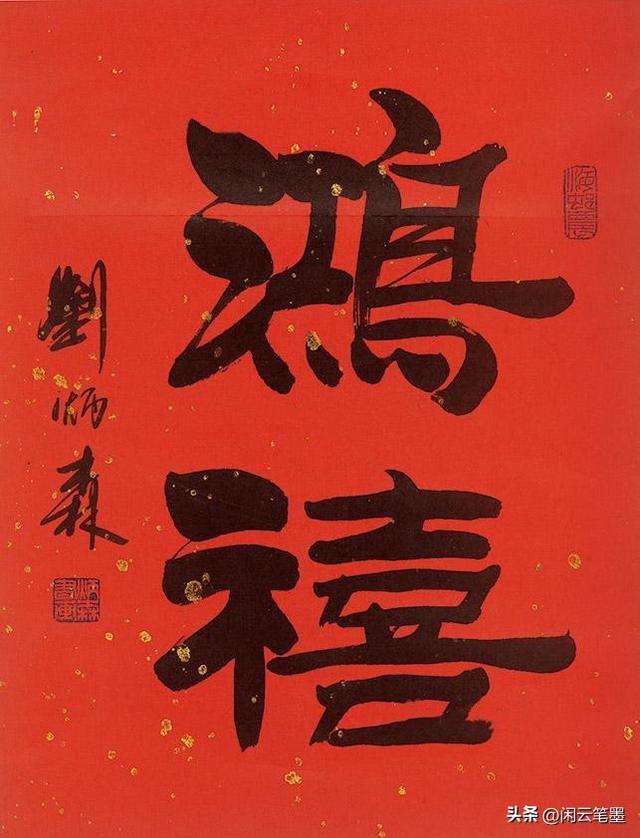 鴻
禧
劉炳森
头条 @闲云笔墨